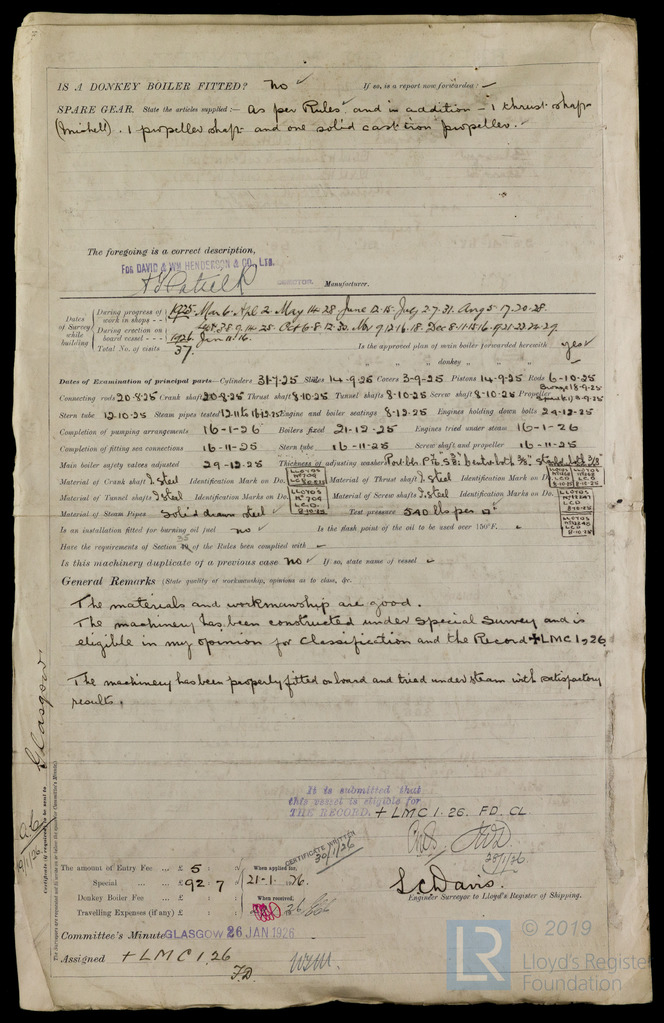 IS A DONKEY BOILER FITTED? No ✓ If so, is a report now forwarded? —
SPARE GEAR. State the articles supplied:— As per Rules and in addition - 1 thrust shaft
(Michell). 1 propeller shaft and one solid cast iron propeller.
The foregoing is a correct description,
FOR DAVID & WM HENDERSON & CO., LTD.
DIRECTOR. Manufacturer.
Dates of Survey while building
During progress of work in shops - - 1925 Mar 6. Apl 2. May 14. 28 June 12. 15. July 2. 7. 31. Aug 5. 17. 20. 28.
During erection on board vessel - - - Oct 6. 8. 12. 30. Nov 9. 12. 16. 18. Dec 8. 11. 15. 16. 9. 21. 22. 24. 29.
1926 Jan 11. 16.
Total No. of visits 37. Is the approved plan of main boiler forwarded herewith yes ✓
" " " donkey " " "
Dates of Examination of principal parts—Cylinders 31-7-25 Slides 14-9-25 Covers 3-9-25 Pistons 14-9-25 Rods 6-10-25
Connecting rods 20-8-25 Crank shaft 20-8-25 Thrust shaft 8-10-25 Tunnel shafts 8-10-25 Screw shaft 8-10-25 Propeller
Stern tube 12-10-25 Steam pipes tested Engine and boiler seatings 8-12-25 Engines holding down bolts 29-12-25
Completion of pumping arrangements 16-1-26 Boilers fixed 21-12-25 Engines tried under steam 16-1-26
Completion of fitting sea connections 16-11-25 Stern tube 16-11-25 Screw shaft and propeller 16-11-25
Main boiler safety valves adjusted 29-12-25 Thickness of adjusting washers
Material of Crank shaft I. Steel Identification Mark on Do. LLOYDS No 704 Material of Thrust shaft I. Steel Identification Mark on Do.
Material of Tunnel shafts I. Steel Identification Marks on Do. LLOYDS No 704 L.C.D. 8-10-25 Material of Screw shafts I. Steel Identification Marks on Do.
Material of Steam Pipes Solid drawn steel ✓ Test pressure 540 lbs per □"
Is an installation fitted for burning oil fuel no ✓ Is the flash point of the oil to be used over 150°F.
Have the requirements of Section of the Rules been complied with
Is this machinery duplicate of a previous case No ✓ If so, state name of vessel
General Remarks (State quality of workmanship, opinions as to class, &c.
The materials and workmanship are good.
The machinery has been constructed under Special Survey and is
eligible in my opinion for Classification and the Record +LMC 1,26
The machinery has been properly fitted on board and tried under steam with satisfactory
results.
It is submitted that
this vessel is eligible for
THE RECORD. + LMC 1. 26. FD. CL
28/1/26
CERTIFICATE WRITTEN 30/1/26
Glasgow
The amount of Entry Fee ... £ 5 : : When applied for,
Special ... ... £ 92 : 7 : 21-1-26.
Donkey Boiler Fee ... £ : : When received,
Travelling Expenses (if any) £ : :
Engineer Surveyor to Lloyd's Register of Shipping.
Committee's Minute GLASGOW 26 JAN 1926
Assigned + LMC 1,26
F.D.
© 2019
LR
Lloyd's Register
Foundation